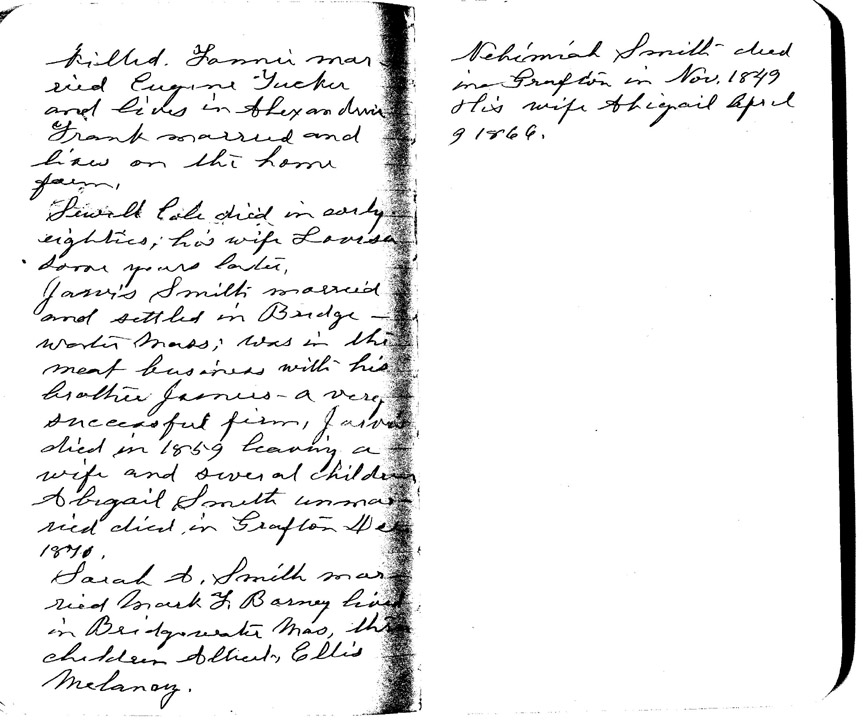 killed. Fannie mar-
ried Eugene Tucker
and lives in Alexandria
Frank married and
lives on the home
farm.
Sewell Cole died in early
eighties; his wife Lovisa
some years later.
Jarvis Smith married
and settled in Bridge-
water Mass; was in the
meat business with his
brother James - a very
successful firm, Jarvis
died in 1859 leaving a
wife and several children
Abigail Smith unmar-
ried died in Grafton Dec
1870.
Sarah A. Smith mar-
ried Mark F. Barney lived
in Bridgewater Mas, three
children Albert, Ellis
Melanoy.
Nehimiah Smith died
in Grafton in Nov. 1849
His wife Abigail April
9 1866.